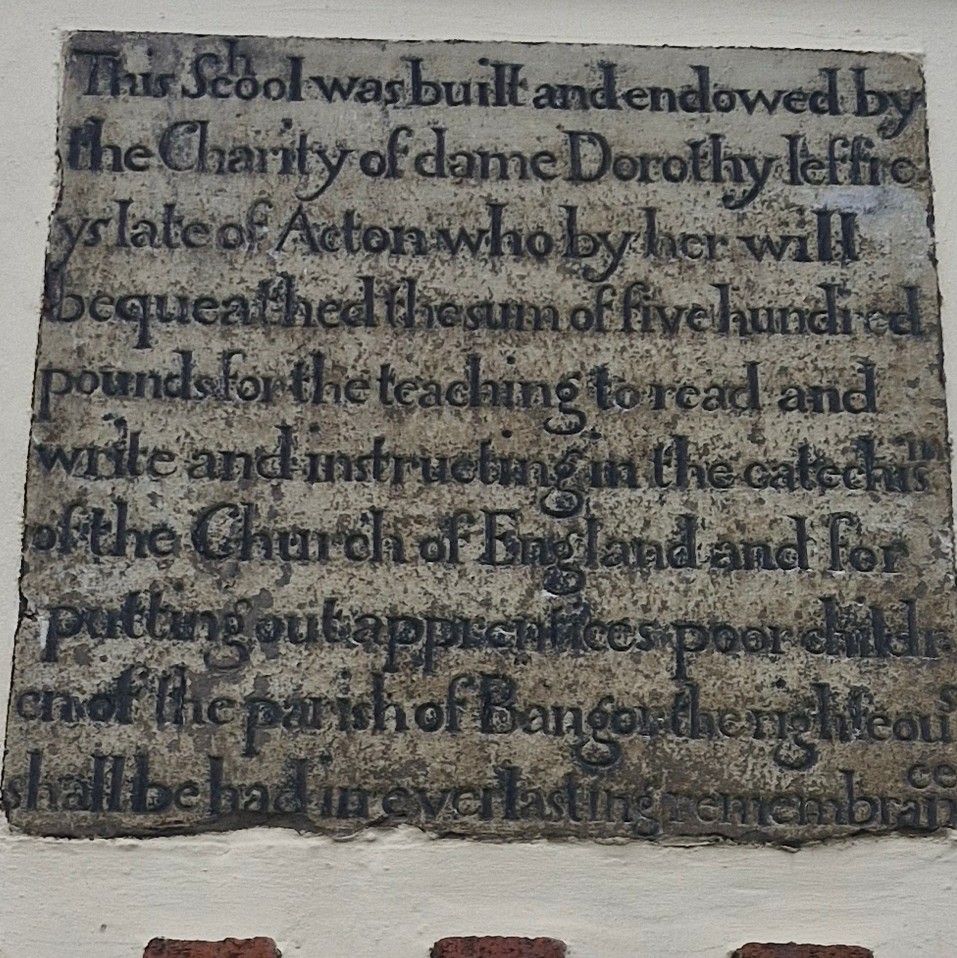 This School was built and endowed by
the Charity of dame Dorothy Ieffre
ys late of Acton who by her will
bequeathed the sum of five hundred
pounds for the teaching to read and
write and instructing in the catechism
of the Church of England and for
putting out apprentices poor childr
en of the parish of Bangor the righteous
shall be had in everlasting remembrance